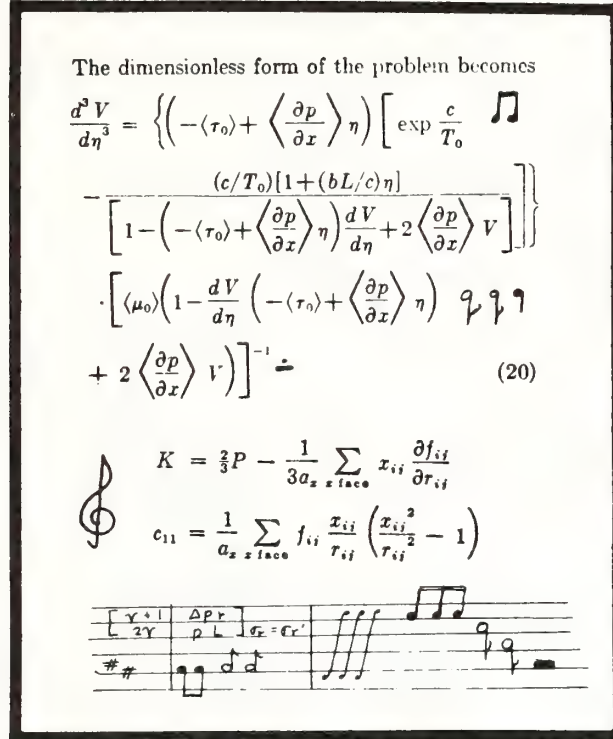 The dimensionless form of the problem becomes
d³V/dη³ = {(−⟨τ₀⟩ + ⟨∂p/∂x⟩ η) [exp c/T₀
− (c/T₀)[1+(bL/c)η] / [1−(−⟨τ₀⟩+⟨∂p/∂x⟩ η) dV/dη + 2⟨∂p/∂x⟩ V]]}
· [⟨μ₀⟩(1− dV/dη (−⟨τ₀⟩+⟨∂p/∂x⟩ η)
+ 2⟨∂p/∂x⟩ V)]⁻¹ (20)
K = ⅔P − 1/3a_z ∑ z face x_ij ∂f_ij/∂r_ij
c₁₁ = 1/a_z ∑ z face f_ij x_ij/r_ij (x_ij²/r_ij² − 1)
[γ+1/2γ | Δpr/pL] σr = σr'